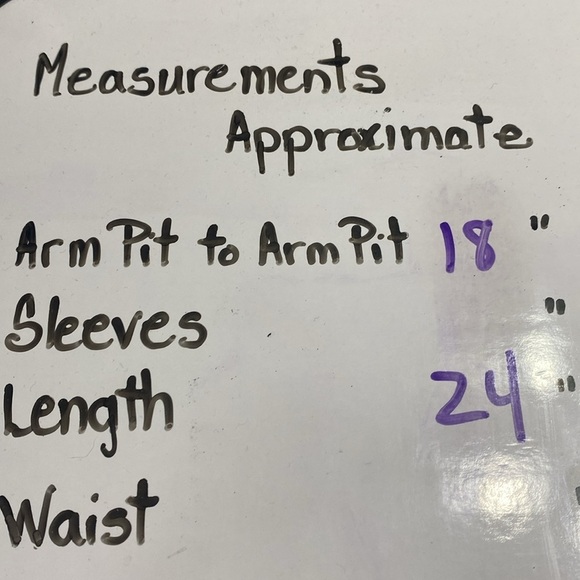 Measurements
Approximate
Arm Pit to Arm Pit 18 "
Sleeves "
Length 24 "
Waist "